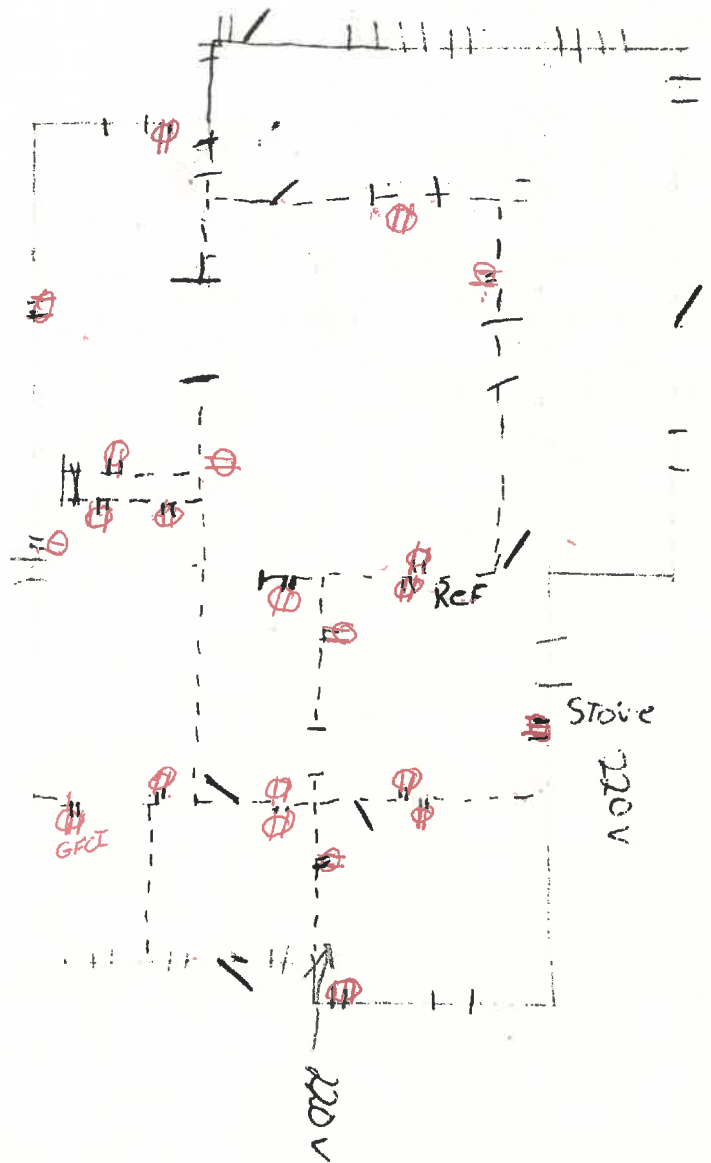 ReF
Stove
220v
GFCI
220v